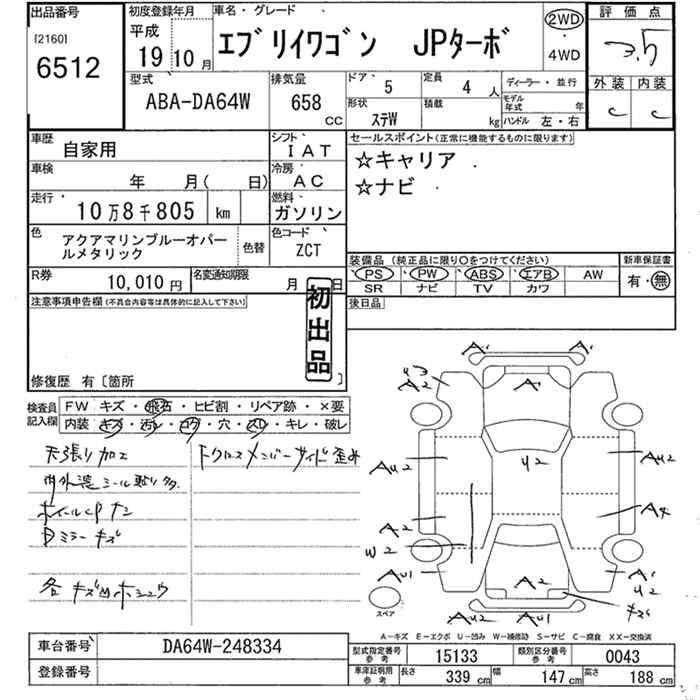 出品番号
[2160]
6512
初度登録年月
平成
19 10 月
車名・グレード
エブリイワゴン JPターボ
2WD
・
4WD
評価点
3.5
外装 内装
C C
型式
ABA-DA64W
排気量
658 CC
ドア 5
定員 4 人
形状 ステW
積載 kg
ディーラー・並行
モデル年式 年
ハンドル 左・右
車歴 自家用
シフト IAT
車検 年 月( 日)
冷房 AC
走行 10万8千805 km
燃料 ガソリン
色 アクアマリンブルーオパールメタリック
色替
色コード ZCT
R券 10,010円
名変通知期限 月 日
セールスポイント(正常に機能するものに限ります)
☆キャリア
☆ナビ
装備品 (純正品に限り○をつけてください)
PS PW ABS エアB AW
SR ナビ TV カワ
新車保証書
有・無
後日品
注意事項申告欄(不具合内容等は具体的に記入して下さい)
初出品
修復歴 有〔箇所 〕
検査員記入欄
FW キズ・飛石・ヒビ割・リペア跡・×要
内装 キズ・汚レ・コゲ・穴・スレ・キレ・破レ
天張り加工
ドミラーキズ
A1 A1
A2 A1
AU2 U2 AU2
A2 A4
W2
AU1 A2 A1
U2
キズ
AU2 AU1
スペア
A－キズ E－エクボ U－凹み W－補修跡 S－サビ C－腐食 XX－交換済
車台番号 DA64W-248334
登録番号
型式指定番号 参考 15133
類別区分番号 参考 0043
車庫証明用 参考 長さ 339 cm 幅 147 cm 高さ 188 cm